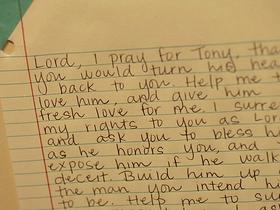 Lord, I pray for Tony, tha
you would turn his hea
back to you. Help me
love him, and give him
fresh love for me. I surre
my rights to you as Lor
and ask you to bless h
as he honors you, and
expose him if he walk
deceit. Build him up
the man you intend h
to be. Help me to su